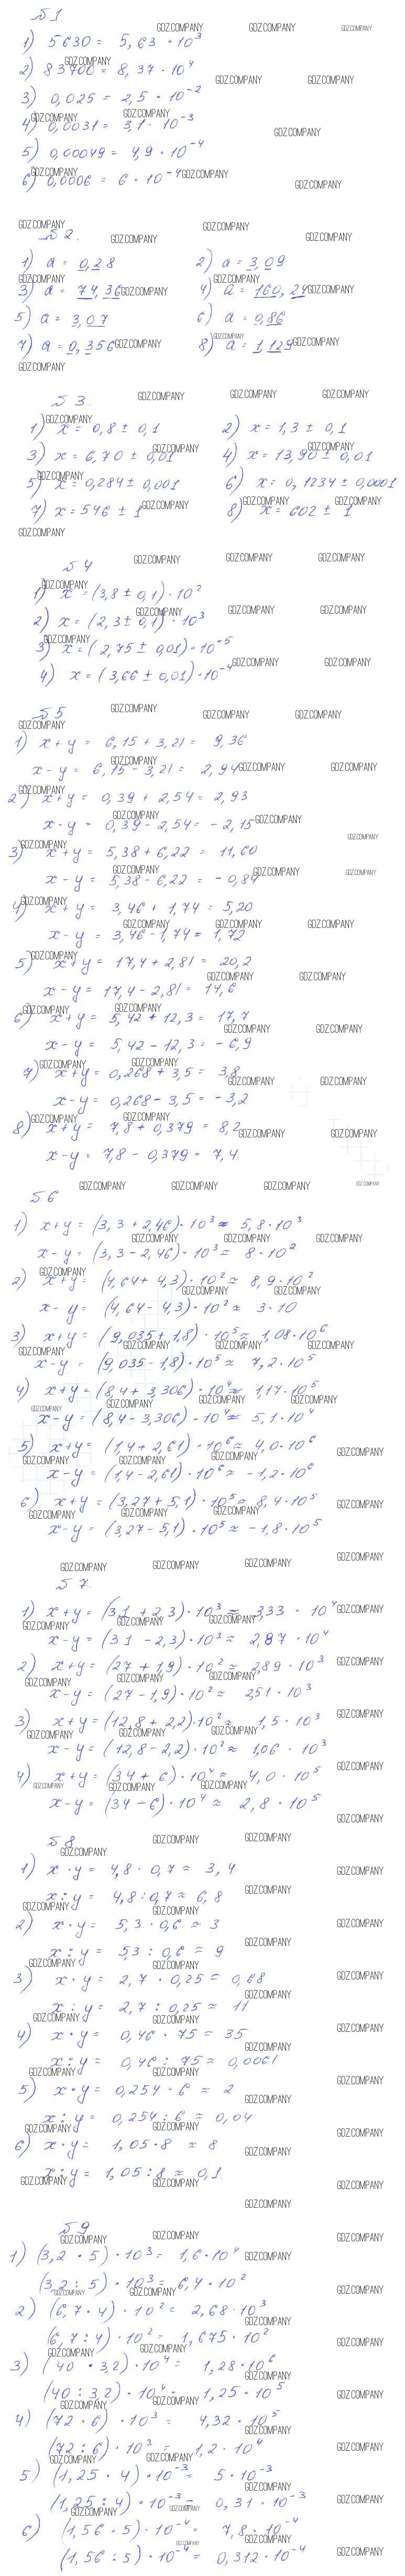 № 1
1) 5630 = 5,63 · 10³
2) 83700 = 8,37 · 10⁴
3) 0,025 = 2,5 · 10⁻²
4) 0,0031 = 3,1 · 10⁻³
5) 0,00049 = 4,9 · 10⁻⁴
6) 0,0006 = 6 · 10⁻⁴
№ 2.
1) a = 0,28 2) a = 3,09
3) a = 74,36 4) a = 160,24
5) a = 3,07 6) a = 0,86
7) a = 0,356 8) a = 1,129
№ 3.
1) x = 0,8 ± 0,1 2) x = 1,3 ± 0,1
3) x = 6,70 ± 0,01 4) x = 13,90 ± 0,01
5) x = 0,284 ± 0,001 6) x = 0,1234 ± 0,0001
7) x = 546 ± 1 8) x = 602 ± 1
№ 4
1) x = (3,8 ± 0,1) · 10²
2) x = (2,3 ± 0,1) · 10³
3) x = (2,75 ± 0,01) · 10⁻⁵
4) x = (3,66 ± 0,01) · 10⁻⁴
№ 5
1) x + y = 6,15 + 3,21 = 9,36
x - y = 6,15 - 3,21 = 2,94
2) x + y = 0,39 + 2,54 = 2,93
x - y = 0,39 - 2,54 = - 2,15
3) x + y = 5,38 + 6,22 = 11,60
x - y = 5,38 - 6,22 = - 0,84
4) x + y = 3,46 + 1,74 = 5,20
x - y = 3,46 - 1,74 = 1,72
5) x + y = 17,4 + 2,81 = 20,2
x - y = 17,4 - 2,81 = 14,6
6) x + y = 5,42 + 12,3 = 17,7
x - y = 5,42 - 12,3 = - 6,9
7) x + y = 0,268 + 3,5 = 3,8
x - y = 0,268 - 3,5 = - 3,2
8) x + y = 7,8 + 0,379 = 8,2
x - y = 7,8 - 0,379 = 7,4
№ 6
1) x + y = (3,3 + 2,46) · 10³ ≈ 5,8 · 10³
x - y = (3,3 - 2,46) · 10³ ≈ 8 · 10²
2) x + y = (4,64 + 4,3) · 10² ≈ 8,9 · 10²
x - y = (4,64 - 4,3) · 10² ≈ 3 · 10
3) x + y = (9,035 + 1,8) · 10⁵ ≈ 1,08 · 10⁶
x - y = (9,035 - 1,8) · 10⁵ ≈ 7,2 · 10⁵
4) x + y = (8,4 + 3,306) · 10⁴ ≈ 1,17 · 10⁵
x - y = (8,4 - 3,306) · 10⁴ ≈ 5,1 · 10⁴
5) x + y = (1,4 + 2,61) · 10⁶ ≈ 4,0 · 10⁶
x - y = (1,4 - 2,61) · 10⁶ ≈ - 1,2 · 10⁶
6) x + y = (3,27 + 5,1) · 10⁵ ≈ 8,4 · 10⁵
x - y = (3,27 - 5,1) · 10⁵ ≈ - 1,8 · 10⁵
№ 7.
1) x + y = (31 + 2,3) · 10³ ≈ 3,33 · 10⁴
x - y = (31 - 2,3) · 10³ ≈ 2,87 · 10⁴
2) x + y = (27 + 1,9) · 10² ≈ 2,89 · 10³
x - y = (27 - 1,9) · 10² ≈ 2,51 · 10³
3) x + y = (12,8 + 2,2) · 10² ≈ 1,5 · 10³
x - y = (12,8 - 2,2) · 10² ≈ 1,06 · 10³
4) x + y = (34 + 6) · 10⁴ ≈ 4,0 · 10⁵
x - y = (34 - 6) · 10⁴ ≈ 2,8 · 10⁵
№ 8
1) x · y = 4,8 · 0,7 ≈ 3,4
x : y = 4,8 : 0,7 ≈ 6,8
2) x · y = 5,3 · 0,6 ≈ 3
x : y = 5,3 : 0,6 ≈ 9
3) x · y = 2,7 · 0,25 = 0,68
x : y = 2,7 : 0,25 ≈ 11
4) x · y = 0,46 · 75 ≈ 35
x : y = 0,46 : 75 ≈ 0,0061
5) x · y = 0,254 · 6 ≈ 2
x : y = 0,254 : 6 ≈ 0,04
6) x · y = 1,05 · 8 ≈ 8
x : y = 1,05 : 8 ≈ 0,1
№ 9
1) (3,2 · 5) · 10³ = 1,6 · 10⁴
(3,2 : 5) · 10³ = 6,4 · 10²
2) (6,7 · 4) · 10² = 2,68 · 10³
(6,7 : 4) · 10² = 1,675 · 10²
3) (40 · 3,2) · 10⁴ = 1,28 · 10⁶
(40 : 3,2) · 10⁴ = 1,25 · 10⁵
4) (72 · 6) · 10³ = 4,32 · 10⁵
(72 : 6) · 10³ = 1,2 · 10⁴
5) (1,25 · 4) · 10⁻³ = 5 · 10⁻³
(1,25 : 4) · 10⁻³ = 0,31 · 10⁻³
6) (1,56 · 5) · 10⁻⁴ = 7,8 · 10⁻⁴
(1,56 : 5) · 10⁻⁴ = 0,312 · 10⁻⁴